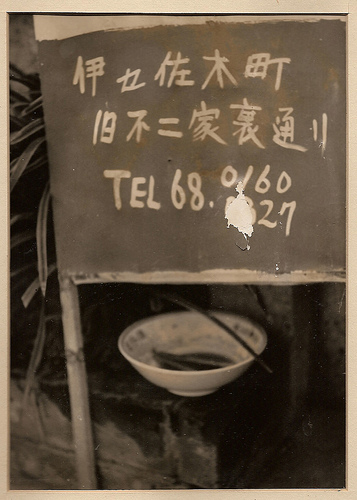 伊セ佐木町
旧不二家裏通り
TEL 68.0160
27